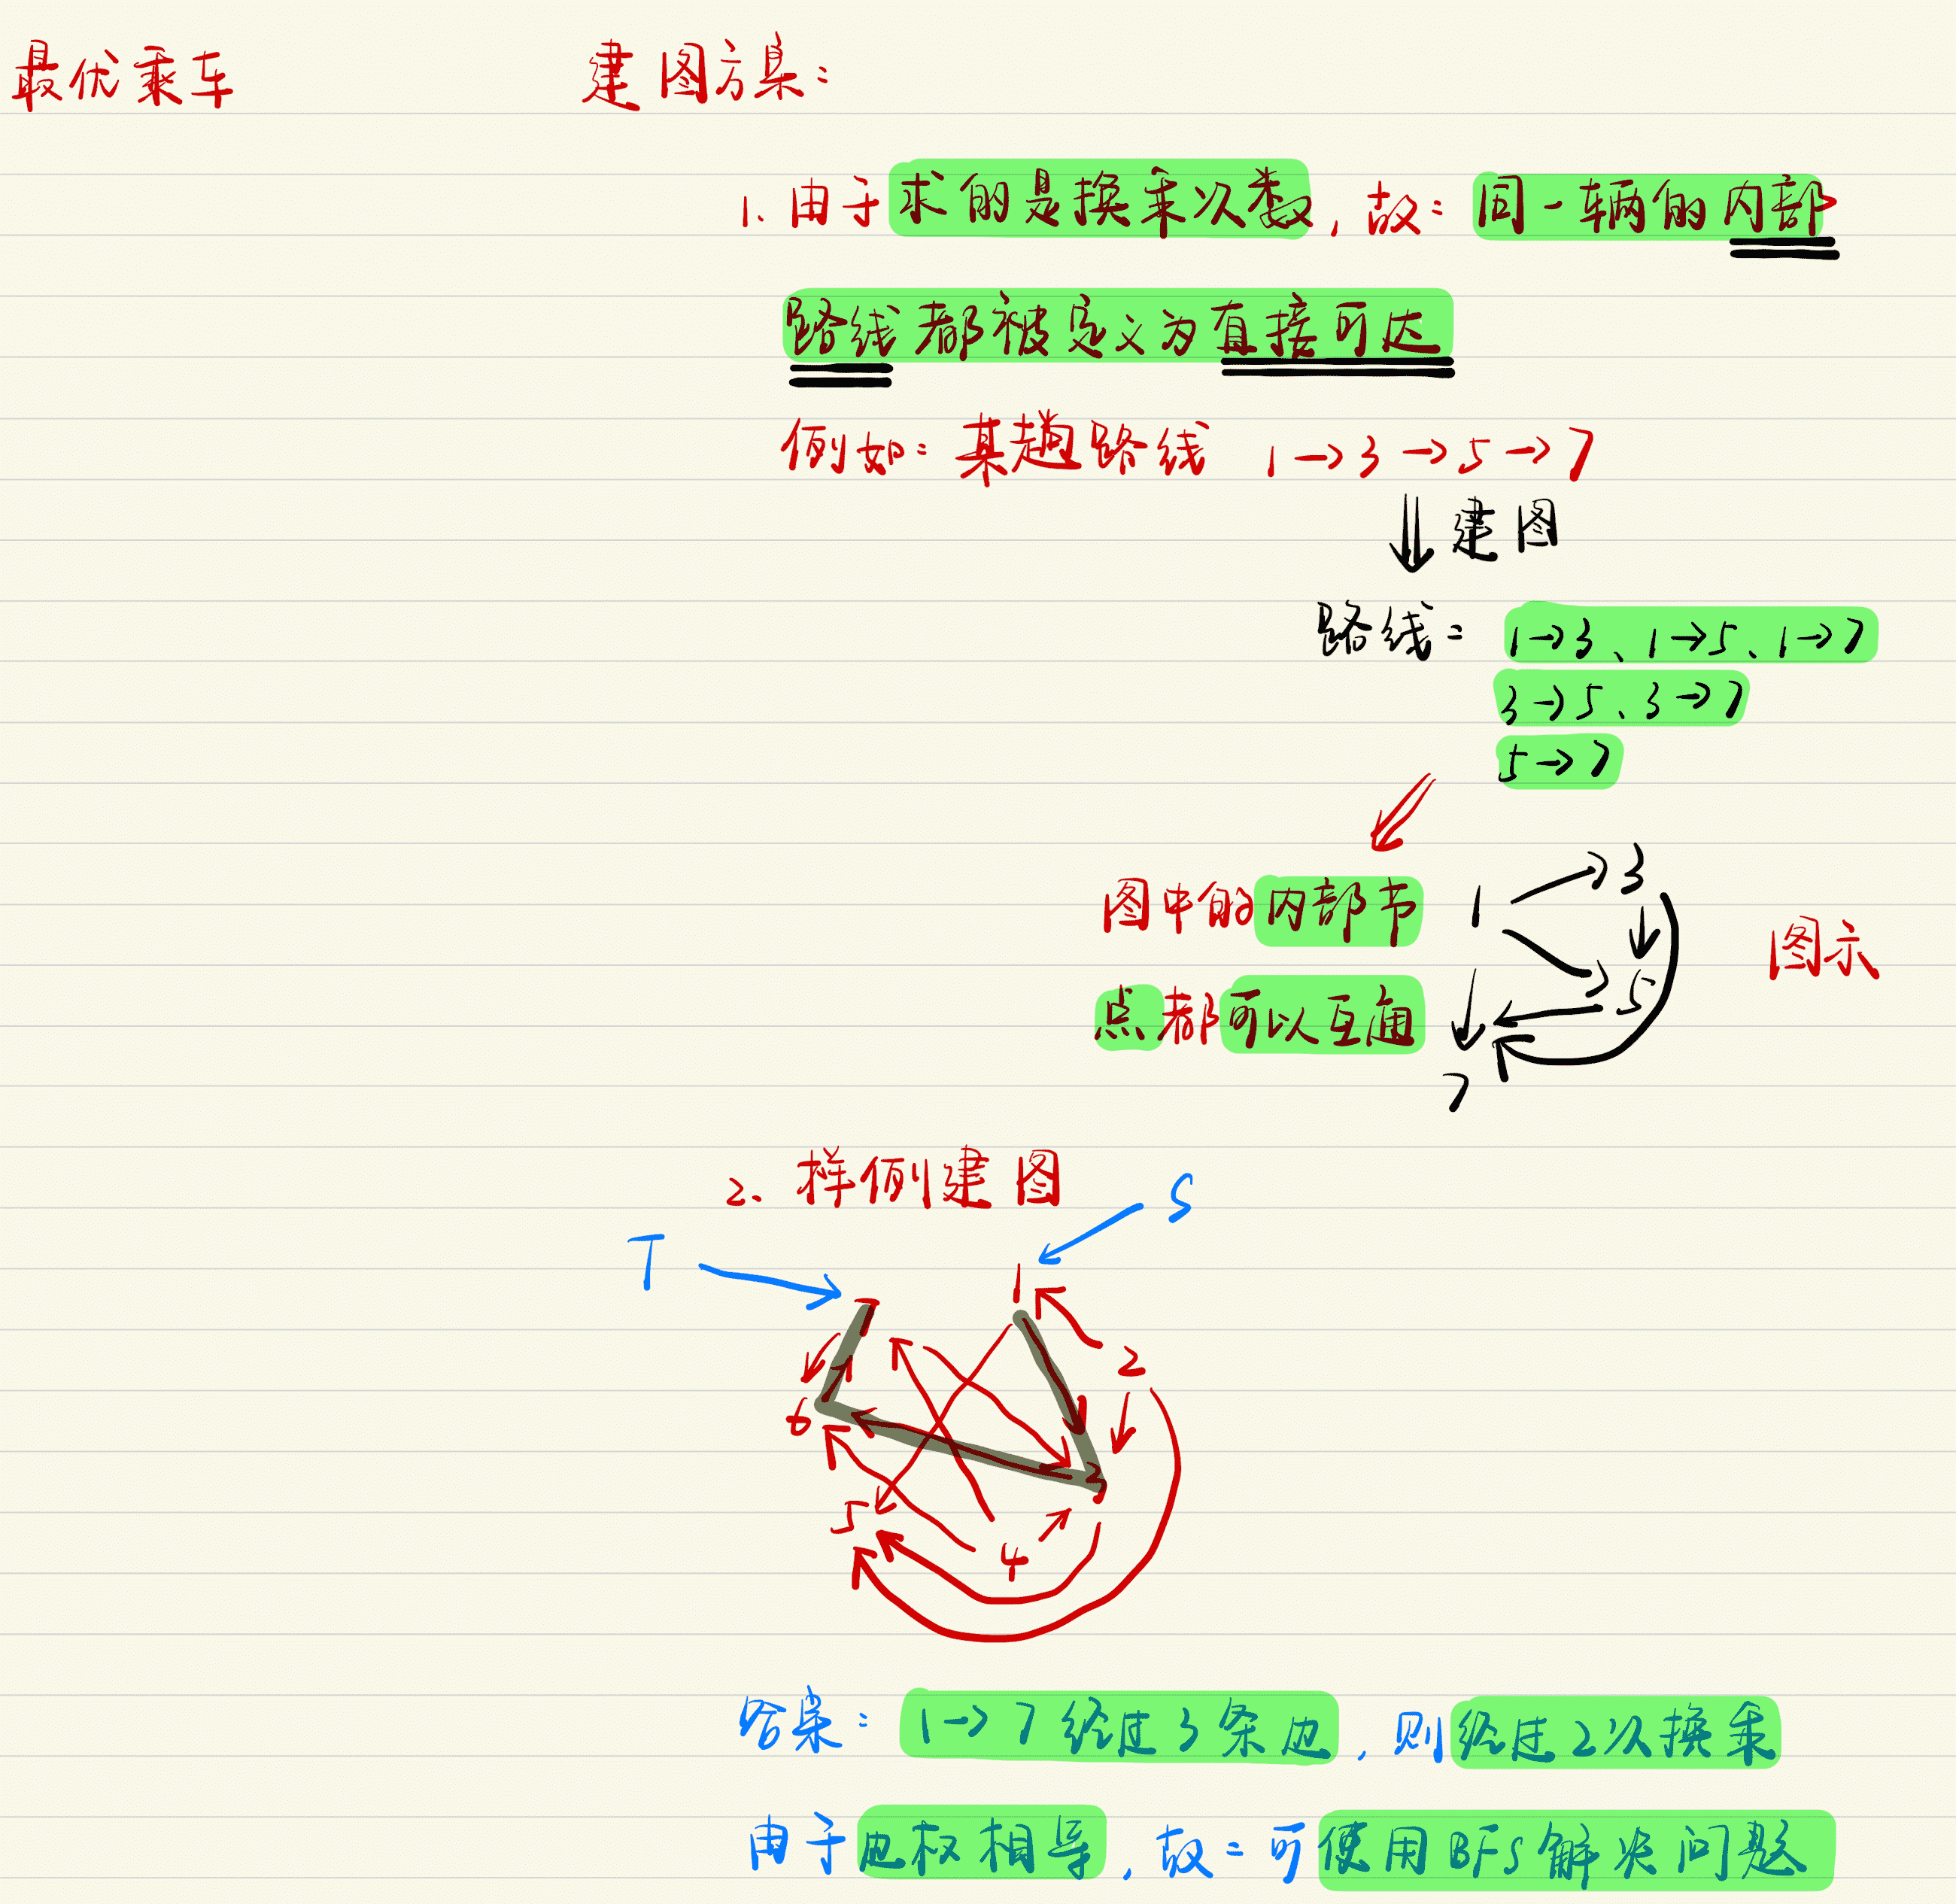 最优乘车 建图方案:
1. 由于求的是换乘次数, 故: 同一辆的内部
路线都被定义为直接可达
例如: 某趟路线 1→3→5→7
建图
路线: 1→3、1→5、1→7
3→5、3→7
5→7
图中的内部节
点都可以互通
1 3 5 7
图示
2. 样例建图
S
T
7 1
2
6
3
5
4
答案: 1→7经过3条边, 则经过2次换乘
由于边权相等, 故: 可使用BFS解决问题